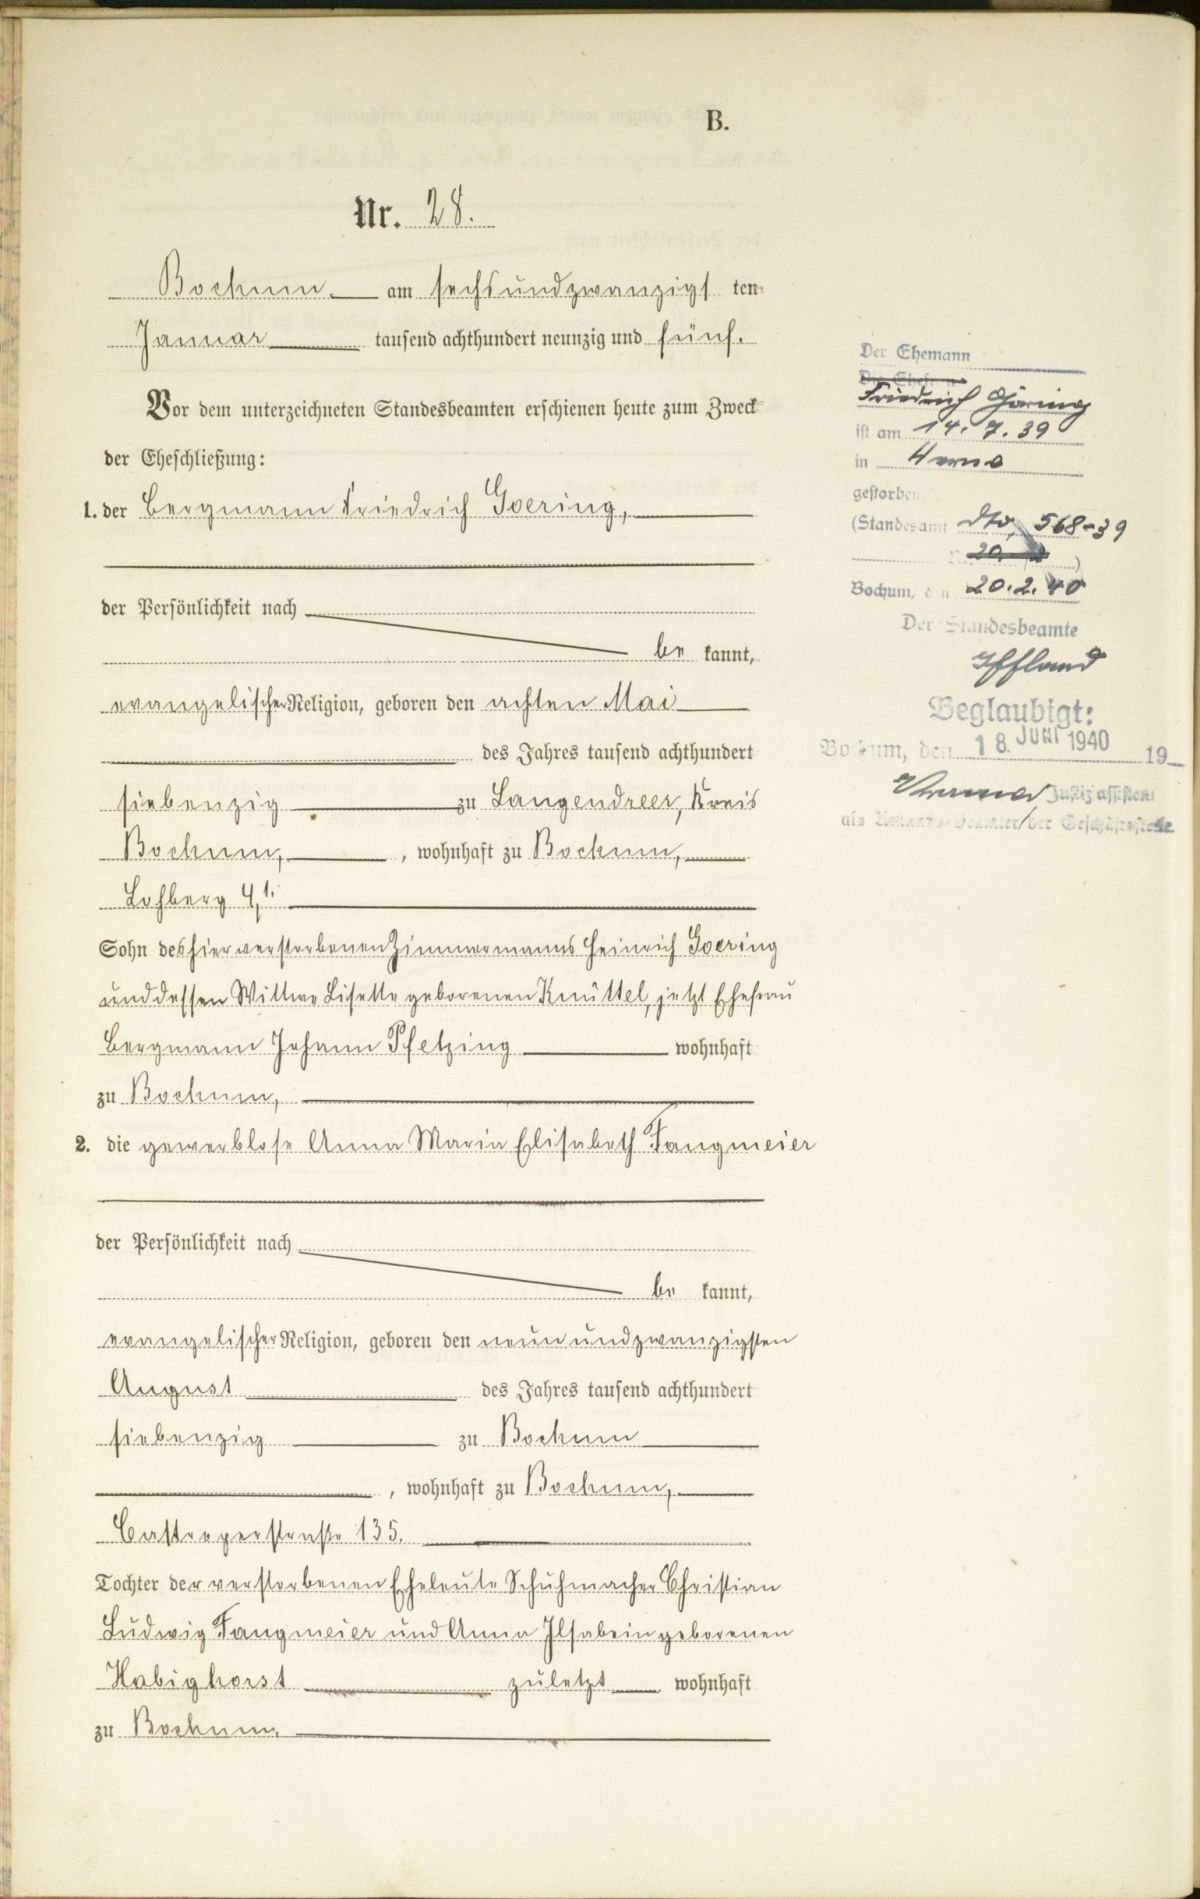 B.
Nr. 28.
Bochum am sechsundzwanzigsten
Januar tausend achthundert neunzig und fünf.
Vor dem unterzeichneten Standesbeamten erschienen heute zum Zweck
der Eheschließung:
1. der Bergmann Friedrich Goering,
der Persönlichkeit nach
be kannt,
evangelischer Religion, geboren den achten Mai
des Jahres tausend achthundert
siebenzig zu Langendreer, Kreis
Bochum, , wohnhaft zu Bochum,
Lohberg 4,
Sohn des hier verstorbenen Zimmermanns Heinrich Goering
und dessen Wittwe Lisette geborenen Knüttel, jetzt Ehefrau
Bergmann Johann Pfetzing wohnhaft
zu Bochum,
2. die gewerblose Anna Maria Elisabeth Fangmeier
der Persönlichkeit nach
be kannt,
evangelischer Religion, geboren den neunundzwanzigsten
August des Jahres tausend achthundert
siebenzig zu Bochum
, wohnhaft zu Bochum,
Castroperstraße 135.
Tochter der verstorbenen Eheleute Schuhmacher Christian
Ludwig Fangmeier und Anna Ilsabein geborenen
Habighorst zuletzt wohnhaft
zu Bochum.
Der Ehemann
Die Ehefrau
Friedrich Göring
ist am 14.7.39
in Herne
gestorben
(Standesamt dto, 568-39
20.
Bochum, den 20.2.40
Der Standesbeamte
Iffland
Beglaubigt:
Bochum, den 18. Juni 1940 19
Justizassistent
als Urkunds-Beamter der Geschäftsstelle